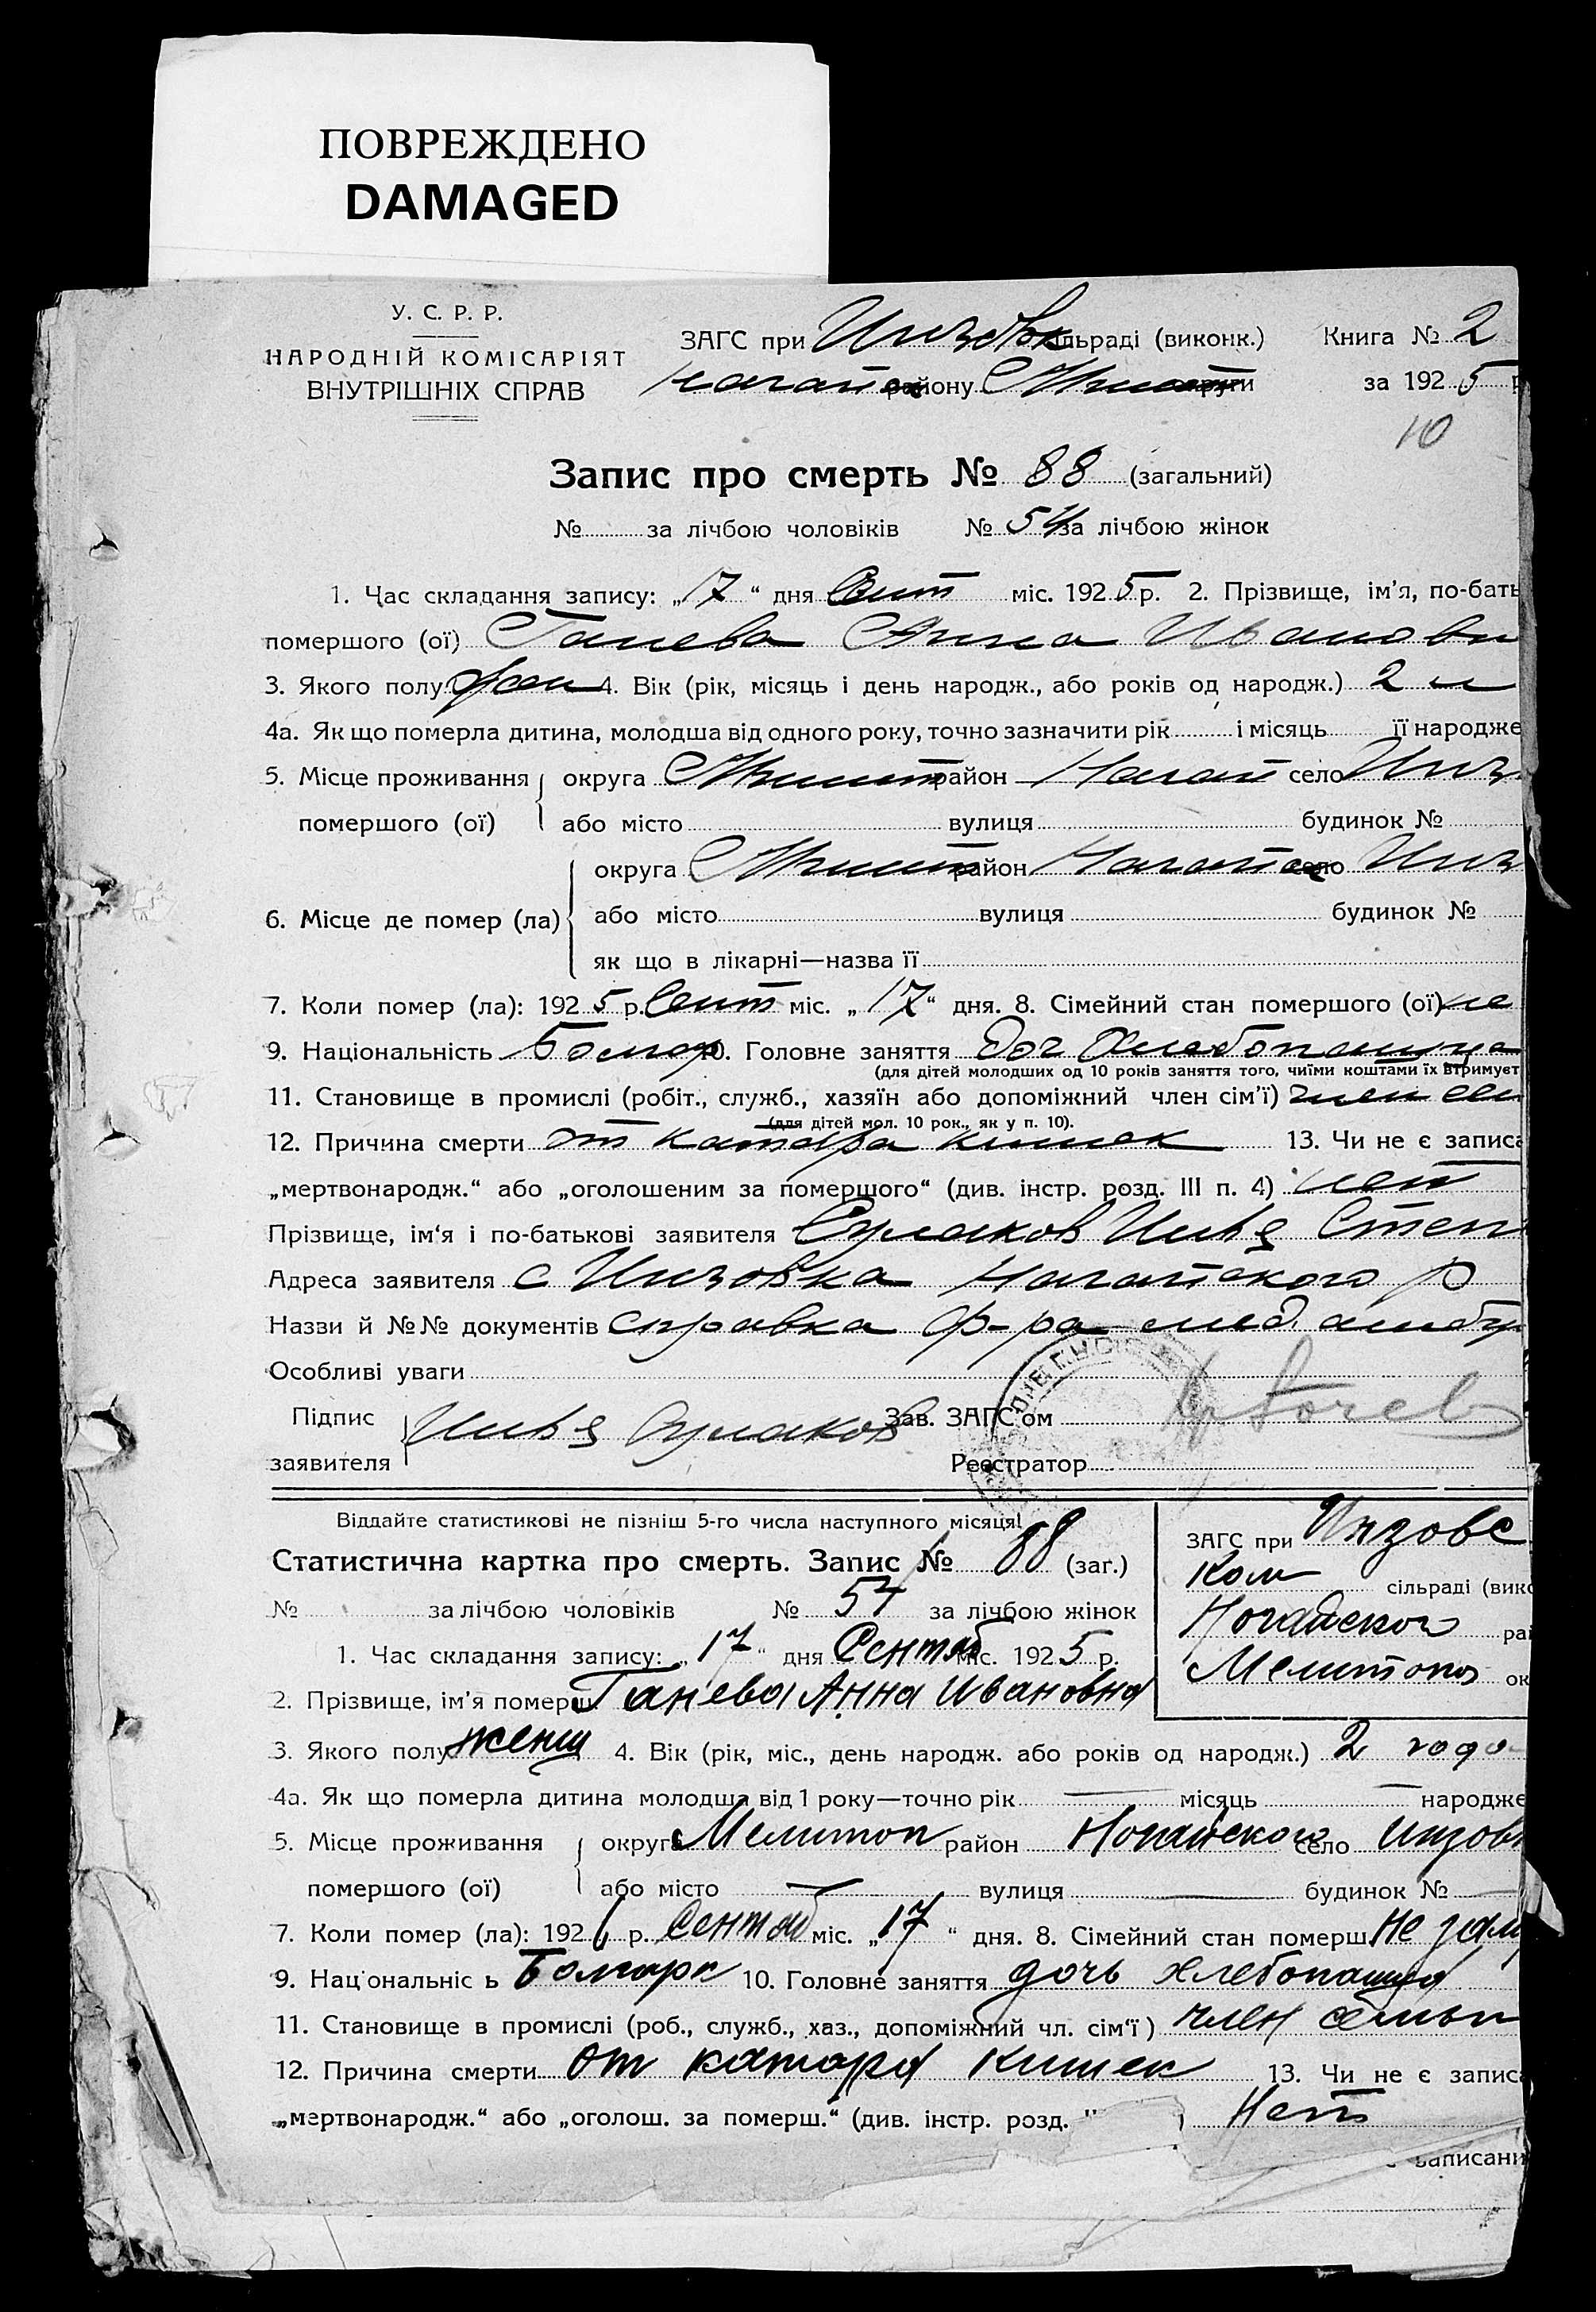 ПОВРЕЖДЕНО
DAMAGED
У. С. Р. Р.
НАРОДНІЙ КОМІСАРІЯТ
ВНУТРІШНІХ СПРАВ
ЗАГС при Инзовк ільраді (виконк.) Книга № 2
району округи за 192 5 р
10
Запис про смерть № 88 (загальний)
№ за лічбою чоловіків № 54 за лічбою жінок
1. Час складання запису: „17“ дня Сент міс. 192 5 р. 2. Прізвище, ім’я, по-бать
помершого (ої) Ганева Анна Ивановн
3. Якого полу жен 4. Вік (рік, місяць і день народж., або років од народж.) 2
4а. Як що померла дитина, молодша від одного року, точно зазначити рік і місяць її народже
5. Місце проживання округа район Ногай село Инз
помершого (ої) або місто вулиця будинок №
округа район Ногайск село Инз
6. Місце де помер (ла) або місто вулиця будинок №
як що в лікарні—назва її
7. Коли помер (ла): 192 5 р. Сент міс. „17“ дня. 8. Сімейний стан помершого (ої) не
9. Національність Болгар 10. Головне заняття доч Хлебопашца
(для дітей молодших од 10 років заняття того, чиїми коштами їх втримует
11. Становище в промислі (робіт., служб., хазяїн або допоміжний член сім’ї) член сем
(для дітей мол. 10 рок., як у п. 10).
12. Причина смерти от катара кишек 13. Чи не є записа
„мертвонародж.“ або „оголошеним за помершого“ (див. інстр. розд. III п. 4) нет
Прізвище, ім‘я і по-батькові заявителя Сулаков Илья Степ
Адреса заявителя с Инзовка Ногайского р
Назви й №№ документів справка ф-ра мед. амбу
Особливі уваги
Підпис Илья Сулаков Зав. ЗАГС‘ом
заявителя Реєстратор
Віддайте статистикові не пізніш 5-го числа наступного місяця!
Статистична картка про смерть. Запис № 88 (заг.)
№ за лічбою чоловіків № 54 за лічбою жінок
ЗАГС при Инзовс
Ком сільраді (вико
Ногайского рай
Мелитопол ок
1. Час складання запису: „17“ дня Сентяб міс. 192 5 р.
2. Прізвище, ім’я помери. Ганева Анна Ивановна
3. Якого полу женщ 4. Вік (рік, міс., день народж. або років од народж.) 2 года
4а. Як що померла дитина молодша від 1 року—точно рік — місяць — народже
5. Місце проживання округа Мелитоп район Ногайского село Инзовк
помершого (ої) або місто — вулиця — будинок № —
7. Коли помер (ла): 192 р. Сентяб міс. „17“ дня. 8. Сімейний стан померш. Не зам
9. Національніс ь Болгарк 10. Головне заняття дочь хлебопашца
11. Становище в промислі (роб., служб., хаз., допоміжний чл. сім‘ї) член семьи
12. Причина смерти от катара кишек 13. Чи не є записа
„мертвонародж.“ або „оголош. за померш.“ (див. інстр. розд. Нет
записани